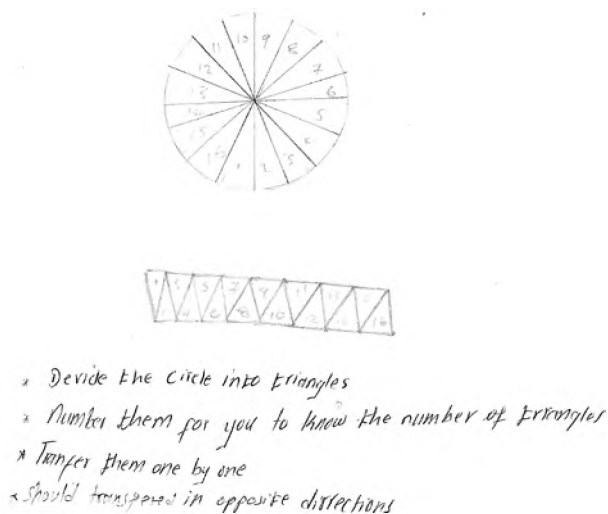 11 10 9 8
12 7
13 6
14 5
15 4
16 1 2 3
1 3 5 7 9 11 13
2 4 6 8 10 12 14 16
* Devide the Circle into triangles
* Number them for you to know the number of triangles
* Tranfer them one by one
* should transpered in opposite dirrections